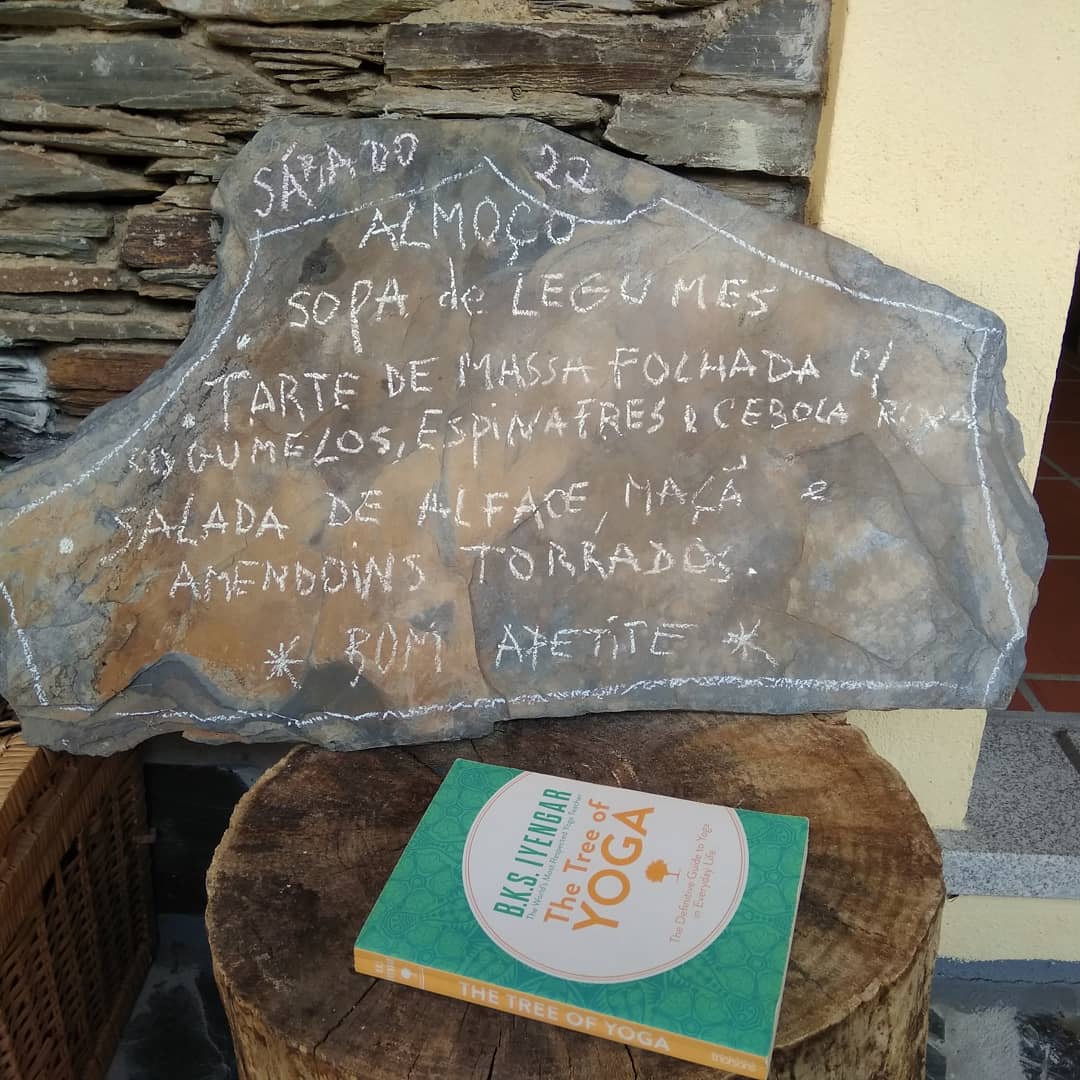 SÁBADO 22
ALMOÇO
• SOPA de LEGUMES
• TARTE DE MASSA FOLHADA C/
COGUMELOS, ESPINAFRES & CEBOLA ROXA
• SALADA DE ALFACE, MAÇÁ e
AMENDOINS TORRADOS.
* BOM APETITE *
B.K.S. IYENGAR
The World's Most Respected Yoga Teacher
The Tree of
YOGA
The Definitive Guide to Yoga
in Everyday Life
THE TREE OF YOGA